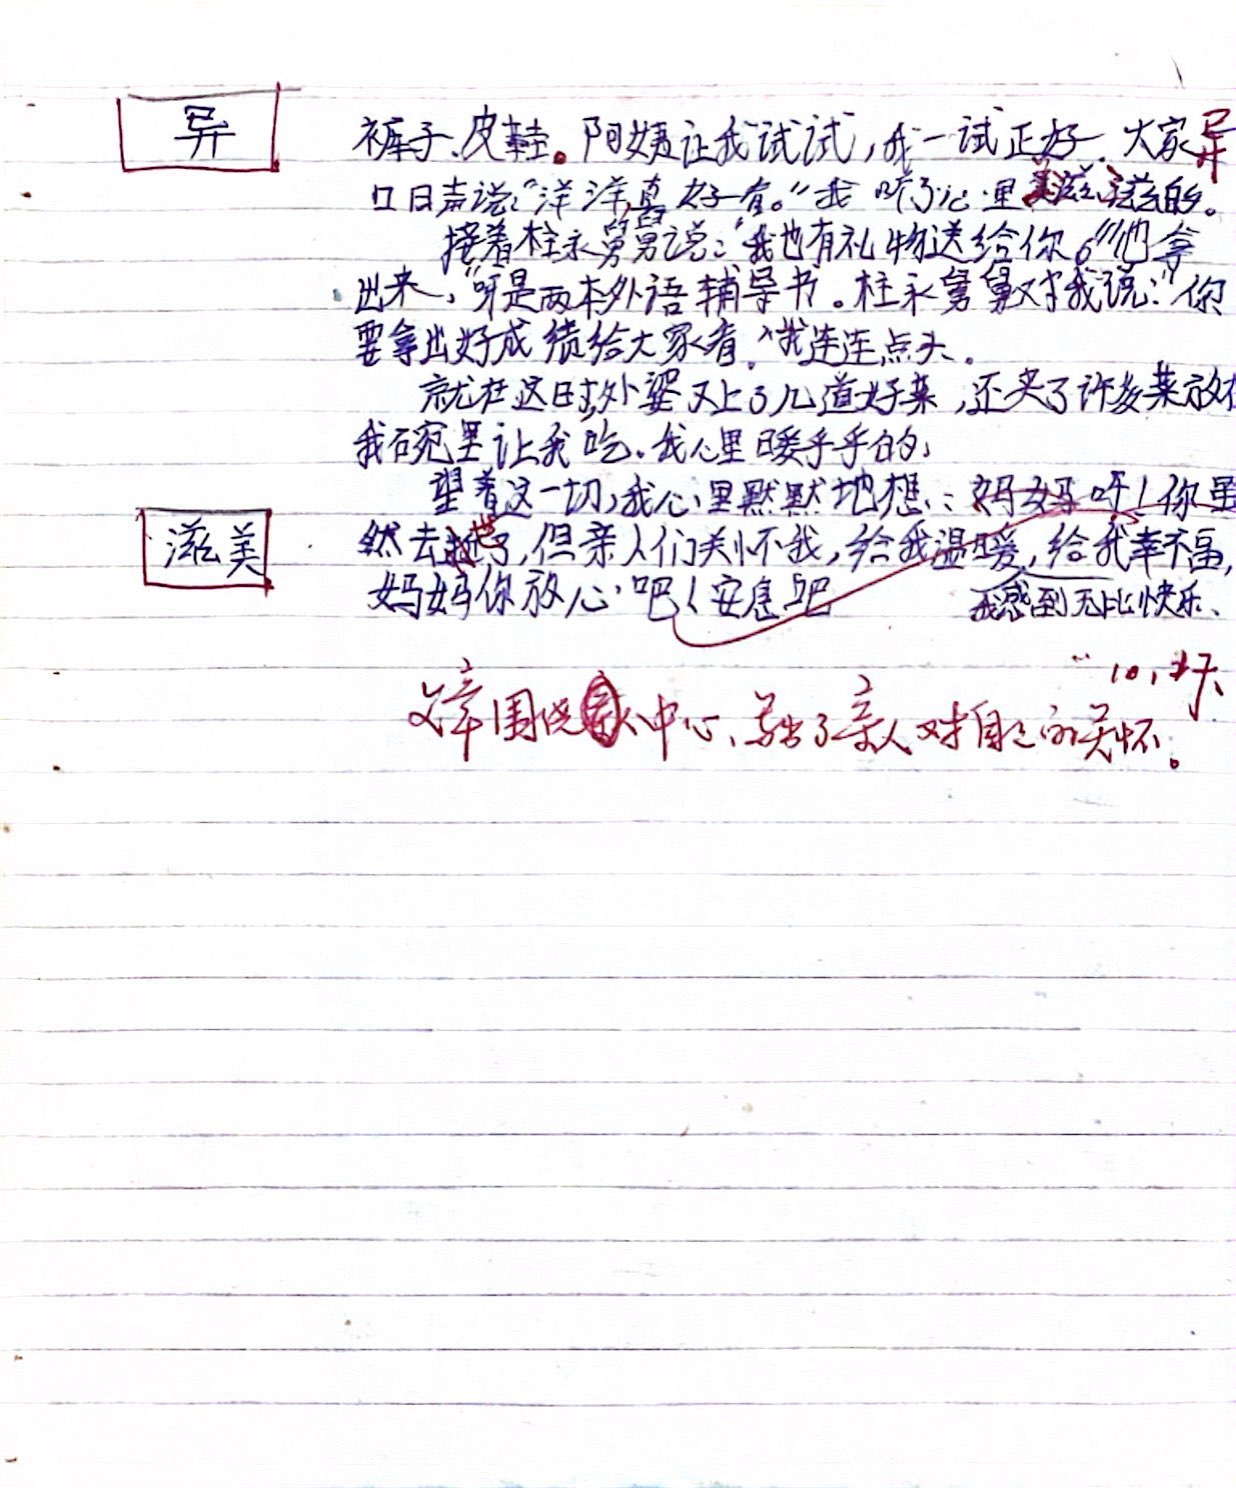 异
裤子、皮鞋。阿姨让我试试，我一试正好.大家异
口日声说：“洋洋，真好看。”我听了心里美滋滋的。
接着柱永舅舅说：“我也有礼物送给你。”他拿
出来，呀是两本外语辅导书。柱永舅舅对我说：“你
要拿出好成绩给大家看.”我连连点头。
就在这时，外婆又上了几道好菜，还夹了许多菜放在
我碗里让我吃.我心里暖乎乎的，
望着这一切，我心里默默地想：妈妈呀！你虽
滋美
然去世了，但亲人们关怀我，给我温暖，给我幸福，
妈妈你放心吧！安息吧
我感到无比快乐.
10.
文章围绕中心、写出了亲人对自己的关怀。